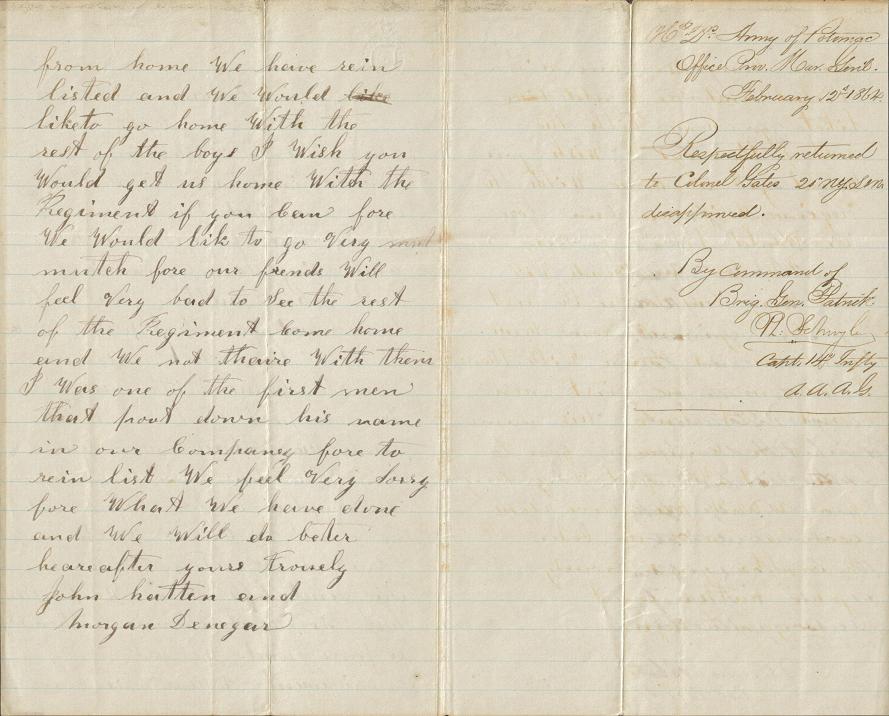 from home We have rein
listed and We Would like
liketo go home With the
rest of the boys I Wish you
Would get us home With the
Regiment if you Can fore
We Would lik to go Very mut
mutch fore our friends Will
feel Very bad to See the rest
of the Regiment Come home
and We not theaire With them
I Was one of the first men
that poot down his name
in our Companey fore to
rein list We feel Very Sorry
fore What We have done
and We Will do beter
heareafter yours Trouely
John hatten and
Morgan Denegar
Hd Qrs Army of Potomac
Office Prov. Mar. Genl.
February 12th 1864.
Respectfully returned
to Colonel Gates 20 NYSM
disapproved.
By command of
Brig. Gen. Patrick
Capt. 14th Infty
A.A.A.G.